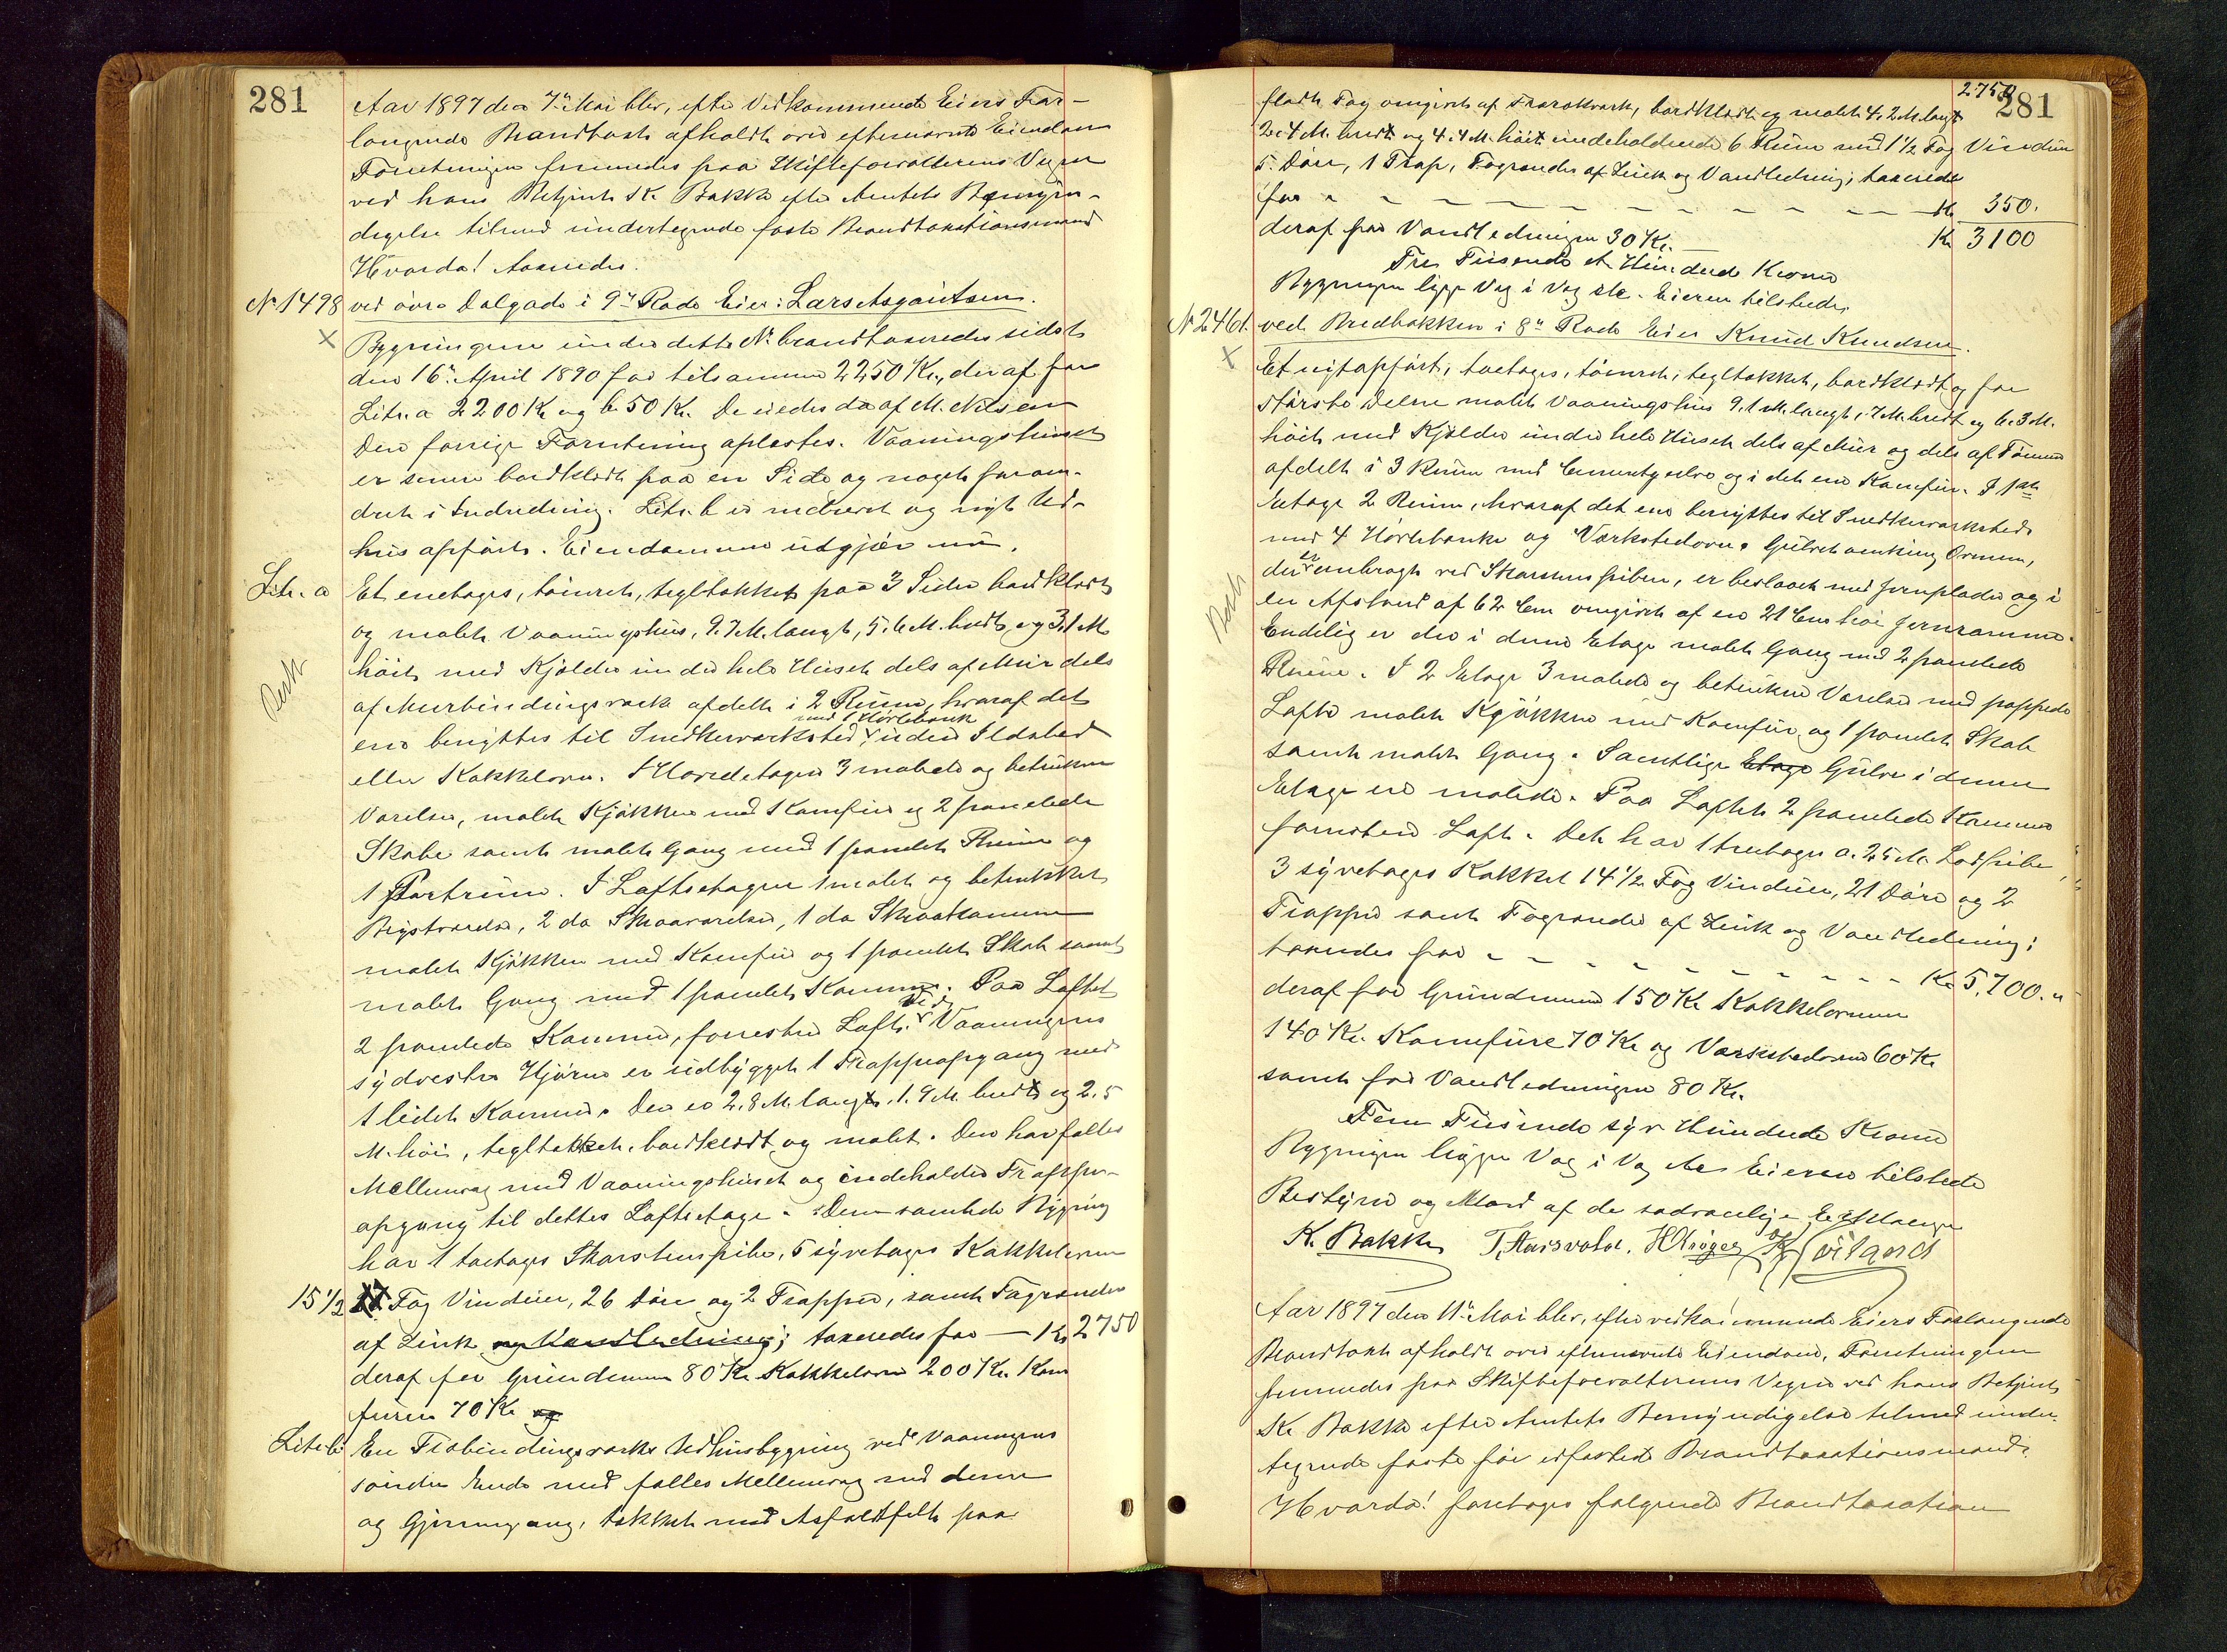 281
Aar 1897 den 7de Mai blev, efter Vedkommende Eiers For-
langende Brandtaxt afholdt over efternævnte Eiendom
Forretningen fremmedes paa Skifteforvalterens Vegne
ved hans Betjent K. Bakke efter Amtets Bemyn-
digelse tilmed undertegnede faste Brandtaxationsmænd
Hvorda! taxeredes.
No 1498 ved øvre Dalgade i 9de Rode Eier: Lars Asgautsen.
Bygningerne under dette No brandtaxeredes sidst
den 16de April 1890 for tilsammen 2250 Kr., deraf for
Litr. a 2200 Kr og b 50 Kr. De eiedes da af M. Nilsen
Den forrige Forretning oplæstes. Vaaningshuset
er senere bordklædt paa en Side og noget foran-
dret i Indredning. Litr. b er nedrevet og nyt Ud-
hus opført. Eiendommen udgjør nu.
Litr. a Et enetages, tømret, tegltækket paa 3 Sider bordklædt
og malet Vaaningshus, 9.7 M. langt, 5.6 M. bredt og 3.1 M
høit med Kjælder under hele Huset dels af Mur dels
af Murbindingsværk afdelt i 2 Rum, hvoraf det
med 1 Høvlebænk
ene benyttes til Snedkerværksted uden Ildsted
eller Kakkelovn. I Hovedetagen 3 malede og betrukne
Værelser, malet Kjøkken med Komfur og 2 panelede
Skabe samt malet Gang med 1 panelet Rum og
1 Portrum. I Loftsetagen 1 malet og betrukket
Kvistværelse, 2 do Skraaværelser, 1 do Skraakammer
malet Kjøkken med Komfur og 1 panelet Skab samt
malet Gang med 1 panelet Kammer. Paa Loftet
2 panelede Kammer, forresten Loft. Ved Vaaningens
sydvestre Hjørne er udbygget 1 Trappeopgang med
1 lidet Kammer. Den er 2.8 M. lang, 1.9 M. bredt og 2.5
M. høi, tegltækket, bordklædt og malet. Den har fælles
Mellemvæg med Vaaningshuset og indeholder Trappe-
opgang til dettes Loftsetage. Den samlede Bygning
har 1 toetages Skorstenspibe, 5 syvetages Kakkelovne
15 1/2 Fag Vinduer, 26 Døre og 2 Trapper, samt Tagrender
af Zink og Vandledning; taxeredes for — Kr 2750
deraf for Grundmuren 80 Kr. Kakkelovne 200 Kr. Kom
furer 70 Kr og
Litr. b En Trebindingsværks Udhusbygning ved Vaaningens
søndre Ende med fælles Mellemvæg med denne
og Gjennemgang, tækket med Asfaltfilt paa
281
2750
fladt Tag omgivet af Træværk, bordklædt og malet 4.2 M. langt
2.4 M. bredt og 4.4 M. høit indeholdende 6 Rum med 1 1/2 Fag Vinduer
5 Døre, 1 Trap, Tagrender af Zink og Vandledning; taxeredes
for - - - Kr 350.
deraf for Vandledningen 30 Kr. Kr 3100
Tre Tusende et Hundrede Kroner
Bygningen ligger Væg i Væg etc. Eieren tilstede.
No 2461. ved Bredbakken i 8de Rode Eier Knud Knudsen.
Et nytopført, toetages, tømret, tegltækket, bordklædt og for
største Delen malet Vaaningshus 9.1 M. langt, 7 M. bredt og 6.3 M.
høit med Kjælder under hele Huset dels af Mur og dels af Tømmer
afdelt i 3 Rum med Cementgulve og i det ene Komfur. I 1ste
Etage 2 Rum, hvoraf det ene benyttes til Snedkerværksted
med 4 Høvlebænke og Værkstedovn. Gulvet omkring Ovnen,
der er anbragt ved Skorstenspiben, er beslaaet med Jernplader og i
en Afstand af 62 Cm omgivet af en 21 Cm høi Jernramme.
Endelig er der i denne Etage malet Gang med 2 panelede
Rum. I 2 Etage 3 malede og betrukne Værelser med pappede
Lofte malet Kjøkken med Komfur og 1 panelet Skab
samt malet Gang. Samtlige Etage Gulve i denne
Etage er malede. Paa Loftet 2 panelede Kammer
forresten Loft. Det har 1 treetages a. 25 M. Lodpibe,
3 syvetages Kakkel 14 1/2 Fag Vinduer, 21 Døre og 2
Trapper samt Tagrender af Zink og Vandledning;
taxeredes for - - - Kr 5,700.
deraf for Grundmuren 150 Kr Kakkelovnene
140 Kr. Komfure 70 Kr og Værkstedovnen 60 Kr
samt for Vandledningen 80 Kr.
Fem Tusende syv Hundrede Kroner
Bygningen ligger Væg i Væg etc. Eieren tilstede
Bestyrer og Mænd af de sædvanlige
K. Bakke T. Austvold. H Kröger K. Höiland
Aar 1897 den 11te Mai blev, efter vedkommende Eiers Forlangende
Brandtaxt afholdt over efternævnte Eiendom, Forretningen
fremmedes paa Skifteforvalterens Vegne ved hans Betjent
K. Bakke efter Amtets Bemyndigelse tilmed under-
tegnede faste før edfæstede Brandtaxationsmænd.
Hvorda! foretoges følgende Brandtaxation